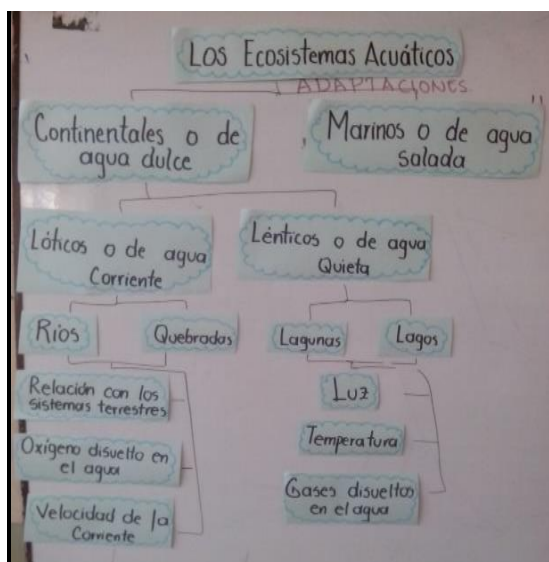 Los Ecosistemas Acuáticos
ADAPTACIONES
Continentales o de
agua dulce
Marinos o de agua
salada
Lóticos o de agua
Corriente
Lénticos o de agua
Quieta
Ríos
Quebradas
Lagunas
Lagos
Relación con los
sistemas terrestres
Oxígeno disuelto en
el agua
Velocidad de la
Corriente
Luz
Temperatura
Gases disueltos
en el agua